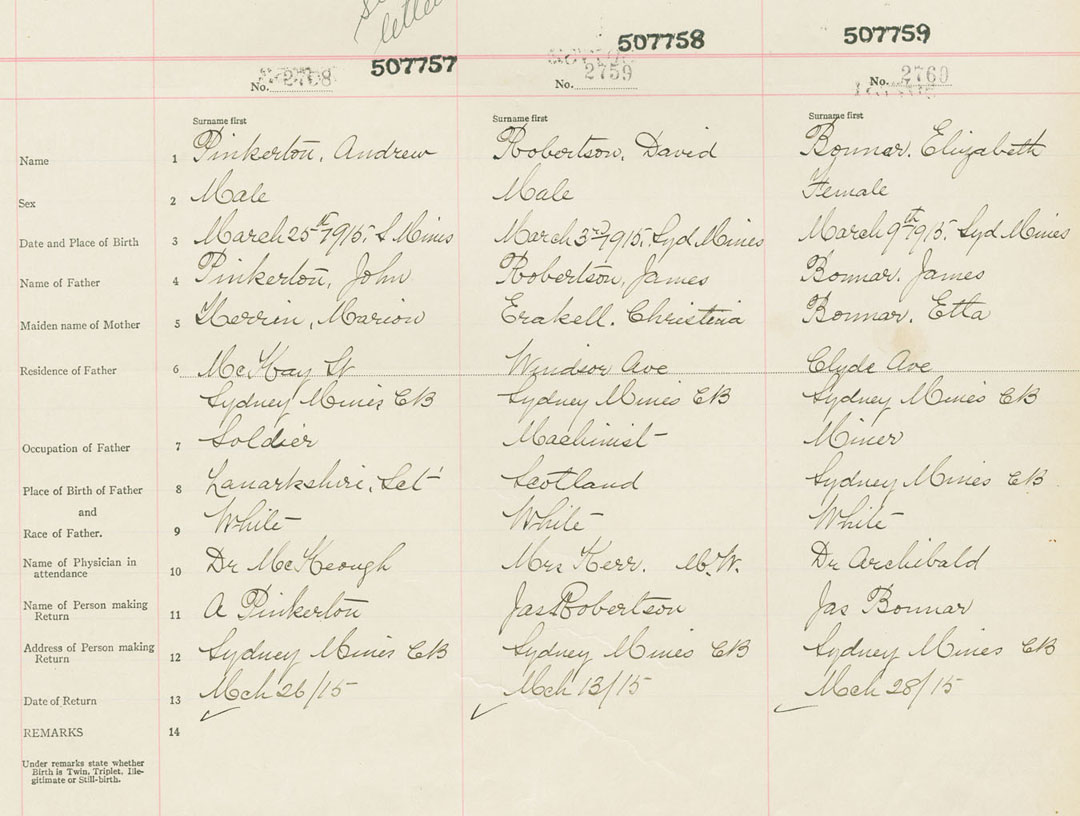 letter
507757 507758 507759
No. 2758 No. 2759 No. 2760
Surname first Surname first Surname first
Name 1 Pinkerton, Andrew Robertson, David Bonnar, Elizabeth
Sex 2 Male Male Female
Date and Place of Birth 3 March 25th 1915, S. Mines March 3rd 1915, Syd Mines March 9th 1915, Syd Mines
Name of Father 4 Pinkerton, John Robertson, James Bonnar, James
Maiden name of Mother 5 Marion Christina Bonnar, Etta
Residence of Father 6 McKay St Windsor Ave Clyde Ave
Sydney Mines CB Sydney Mines CB Sydney Mines CB
Occupation of Father 7 Soldier Machinist Miner
Place of Birth of Father 8 Lanarkshire, Sct Scotland Sydney Mines CB
and
Race of Father. 9 White White White
Name of Physician in
attendance 10 Dr McKeough Mrs Kerr. M.W. Dr Archibald
Name of Person making
Return 11 A Pinkerton Jas Robertson Jas Bonnar
Address of Person making
Return 12 Sydney Mines CB Sydney Mines CB Sydney Mines CB
Date of Return 13 Mch 26/15 Mch 13/15 Mch 28/15
REMARKS 14
Under remarks state whether
Birth is Twin, Triplet, Ille-
gitimate or Still-birth.